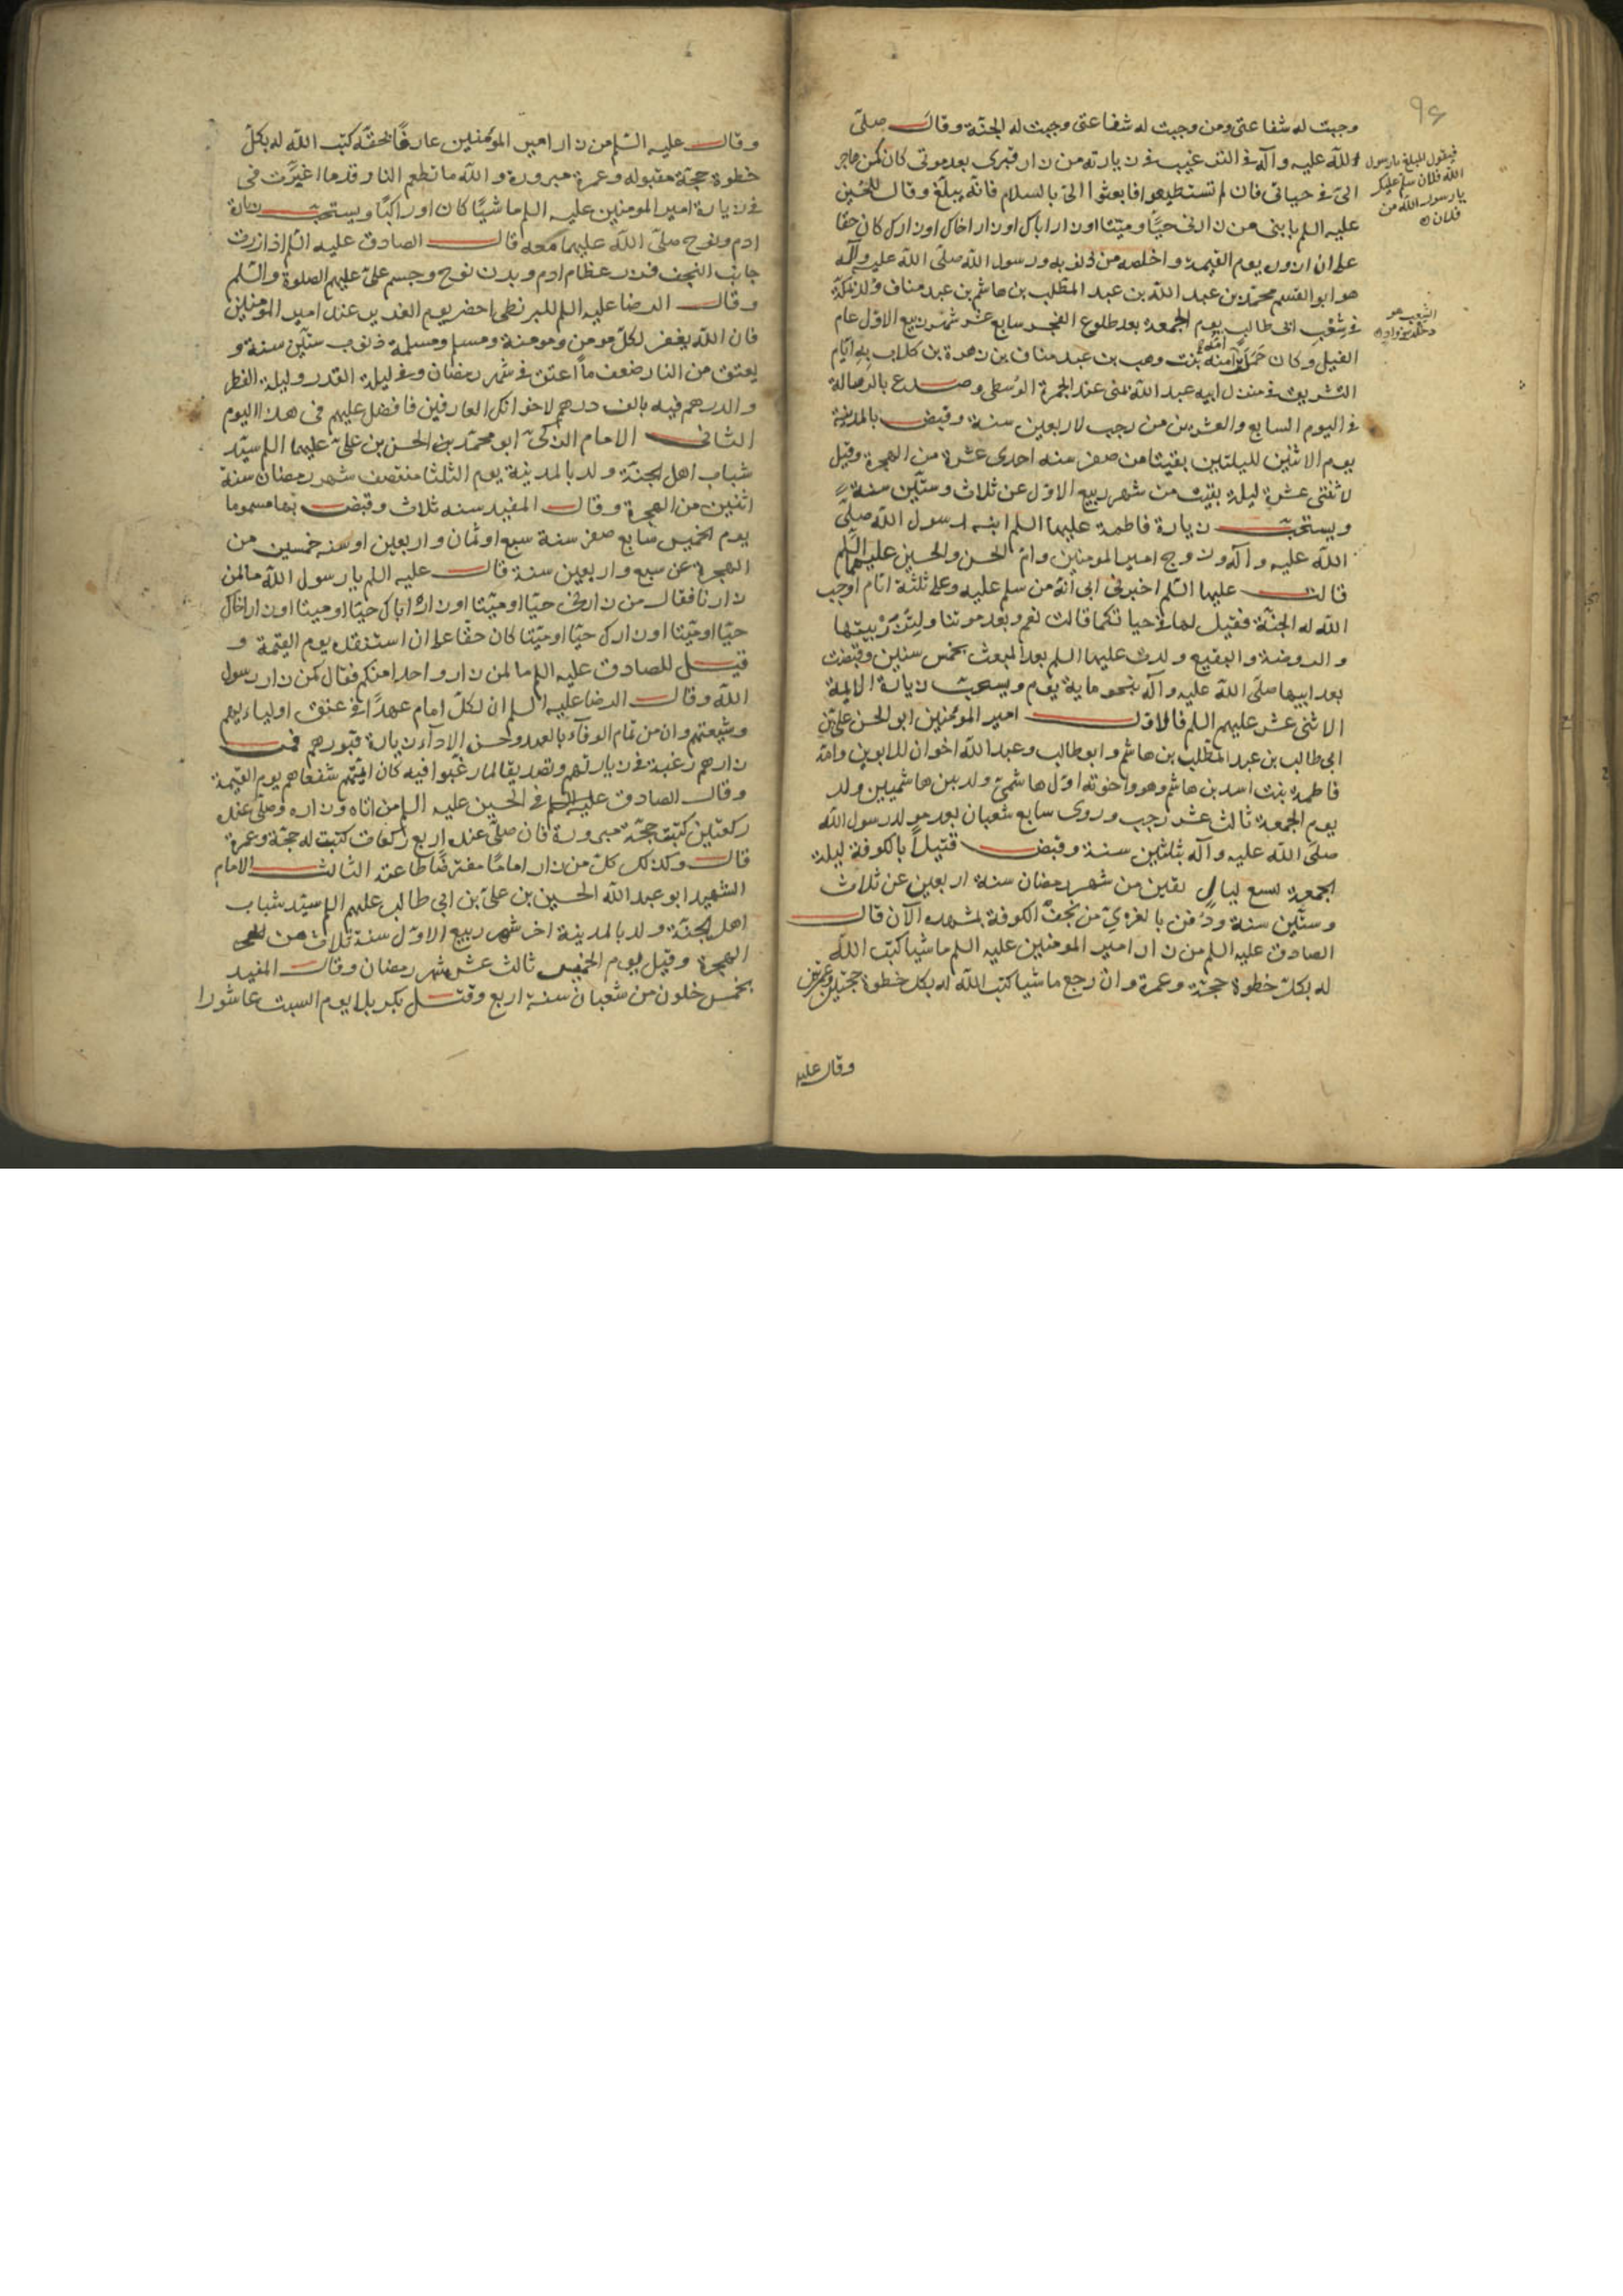 وجبت له شفاعتى ومن وجبت له شفاعتى وجبت له الجنّة وقال صلّى
الله عليه وآله فى الترغيب فى زيارته من زار قبرى بعد موتى كان كمن هاجر
الىّ فى حياتى فان لم تستطيعوا فابعثوا الىّ بالسلام فانّه يبلّغ وقال للحسين
عليه السلم يا بنى من زارنى حيًّا وميتا او زار اباك او زار اخاك او زارك كان حقّا
علىّ ان ازوره يوم القيمة واخلصه من ذنوبه ورسول الله صلّى الله عليه وآله
هو ابو القسم محمّد بن عبد الله بن عبد المطّلب بن هاشم بن عبد مناف ولد بمكّة
فى شِعْب ابى طالب يوم الجمعة بعد طلوع الفجر سابع عشر شهر ربيع الاوّل عام
الفيل وكان حَملَت امّه آمنة بنت وهب بن عبد مناف بن زهرة بن كلاب به ايّام
التشريق فى منزل ابيه عبد الله بمنى عند الجمرة الوُسطى وصدع بالرسالة
فى اليوم السابع والعشرين من رجب لاربعين سنة وقبض بالمدينة
يوم الاثنين لليلتين بقيتا من صفر سنه احدى عشرة من الهجرة وقيل
لاثنتى عشرة ليلة بقيت من شهر ربيع الاوّل عن ثلاث وستّين سنة
ويستحبّ زيارة فاطمة عليها السلم ابنة رسول الله صلّى
الله عليه وآله وزوج امير المومنين وامّ الحسن والحسين عليهما السّلم
قالت عليها السّلم اخبرنى ابى انّه من سلم عليه وعلىّ ثلثة ايّام اوجب
الله له الجنّة فقيل لها فى حياتكما قالت نعم وبعد موتنا وليُزَرْ ببيتها
والروضة والبقيع ولدت عليها السلم بعد المبعث بخمس سنين وقبضت
بعد ابيها صلّى الله عليه وآله بنحو ماية يوم ويستحبّ زيارة الايمة
الاثنى عشر عليهم السلم فالاوّل امير المومنين ابو الحسن علىّ بن
ابى طالب بن عبد المطّلب بن هاشم وابو طالب وعبد الله اخوان للابوين وامّه
فاطمة بنت اسد بن هاشم وهو واخوته اوّل هاشمىّ ولد بين هاشميين ولد
يوم الجمعة ثالث عشر رجب وروى سابع شعبان بعد مولد رسول الله
صلّى الله عليه وآله بثلثين سنة وقبض قتيلًا بالكوفة ليلة
الجمعة لتسع ليال بقين من شهر رمضان سنة اربعين عن ثلاث
وستّين سنة ودُفن بالغرىّ من نجف الكوفة بمشهده الآن قال
الصادق عليه السلم من زار امير المومنين عليه السلم ماشيا كتب الله
له بكلّ خطوة حجّة وعمرة وان رجع ماشيا كتب الله له بكل خطوة حجّتين وعمرتين
وقال عليه
فيقول المبلغ يا رسول
الله فلان سلم عليك
يا رسول الله من
فلان
الشعب هو
وقال عليه السّلم من زار امير المؤمنين عارفًا بحقّه كتب الله له بكلّ
خطوة حجّة مقبوله وعمرة مبرورة والله ما تطعم النار قدما اغبرّت فى
فى زيارة امير المومنين عليه السلم ماشيًا كان او راكبًا ويستحبّ زيارة
ادم ونوح صلّى الله عليهما معه قال الصادق عليه السّلم اذا زرت
جانب النجف فزر عظام ادم وبدن نوح وجسم علىّ عليهم الصلوة والسّلم
وقال الرضا عليه السلم للبزنطى احضر يوم الغدير عند امير المومنين
فان الله يغفر لكلّ مومن ومومنة ومسلم ومسلمة ذنوب ستّين سنة و
يعتق من النار ضعف ما اعتق فى شهر رمضان وفى ليلة القدر وليلة الفطر
والدرهم فيه بالف درهم لاخوانك العارفين فافضل عليهم فى هذا اليوم
الثانى الامام الزكىّ ابو محمّد بن الحسن بن علىّ عليهما السلم سيّد
شباب اهل الجنّة ولد بالمدينة يوم الثلثا منتصف شهر رمضان سنة
اثنين من الهجرة وقال المفيد سنه ثلاث وقبض بها مسموما
يوم الخميس سابع صفر سنة سبع او ثمان واربعين او سنه خمسين من
الهجرة عن سبع واربعين سنة قال عليه السلم يا رسول الله ما لمن
زارنا فقال من زارنى حيّا او ميّتا او زار اباك حيّا او ميتا او زار اخاك
حيّا او ميّتا او زارك حيّا او ميّتا كان حقّا علىّ ان استنقذه يوم القيمة و
قيل للصادق عليه السلم ما لمن زار واحدا منكم فقال كمن زار رسول
الله وقال الرضا عليه السلم ان لكلّ امام عهدًا فى عنق اوليايهم
وشيعتهم وان من تمام الوفاء بالعهد وحسن الاداء زيارة قبورهم فمن
زارهم رغبة فى زيارتهم وتصديقا لما رغّبوا فيه كان ائمّتهم شفعاهم يوم القيمة
وقال الصادق عليه السلم فى الحسين عليه السلم من اتاه وزاره وصلّى عنده
ركعتين كتبت حجّة مبرورة فان صلّى عنده اربع ركعات كتبت له حجّة وعمرة
قال وكذلك كلّ من زار امامًا مفترضًا طاعته الثالث الامام
الشهيد ابو عبد الله الحسين بن علىّ بن ابى طالب عليهم السلم سيّد شباب
اهل الجنّة ولد بالمدينة اخر شهر ربيع الاوّل سنة ثلاث من
الهجرة وقيل يوم الخميس ثالث عشر شهر رمضان وقال المفيد
بخمس خلون من شعبان سنة اربع وقتل بكربلا يوم السبت عاشورا